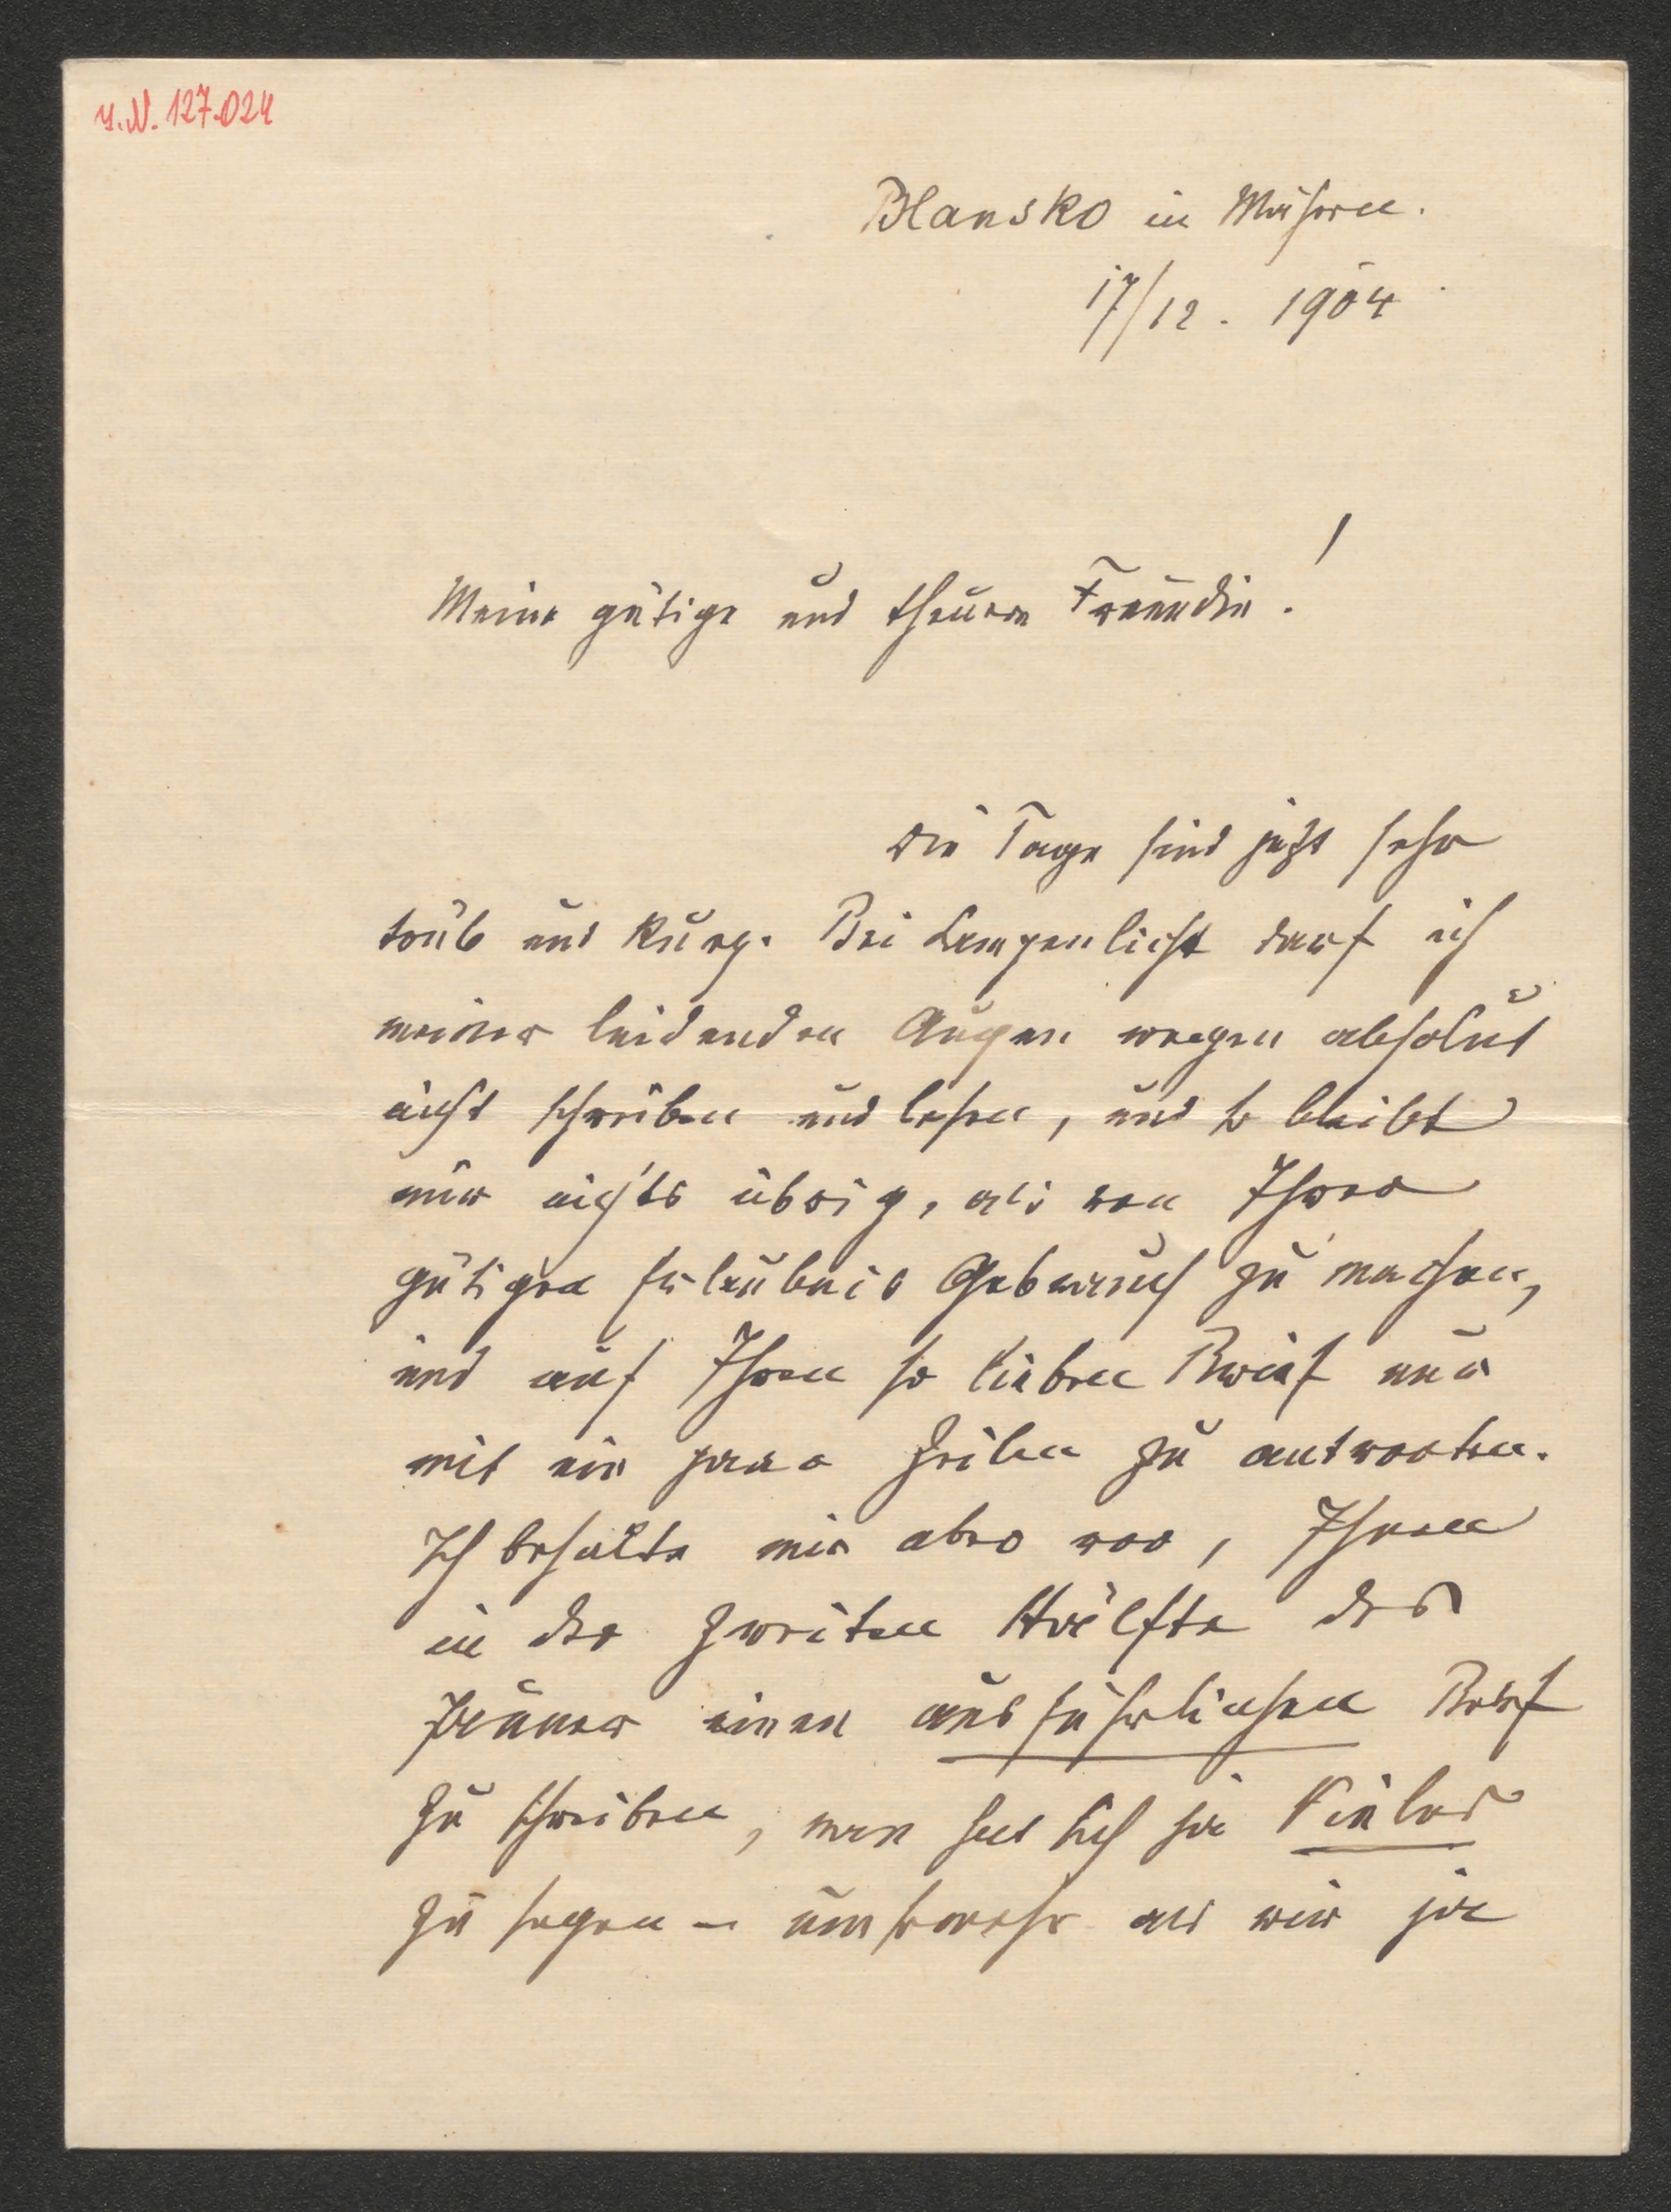 I.N. 127.024
Blansko in Mähren.
17/12. 1904
Meine gütige und theuere Freundin!
Die Tage sind jetzt sehr
trüb und kurz. Bei Lampenlicht darf ich
meiner leidenden Augen wegen absolut
nicht schreiben und lesen, und so bleibt
mir nichts übrig, als von Ihrer
gütigen Erlaubnis Gebrauch zu machen,
und auf Ihren so lieben Brief nur
mit ein paar Zeilen zu antworten.
Ich behalte mir aber vor, Ihnen
in der zweiten Hälfte des
Jänner einen ausführlichen Brief
zu schreiben, man hat sich ja Vieles
zu sagen – umsomehr als wir ja